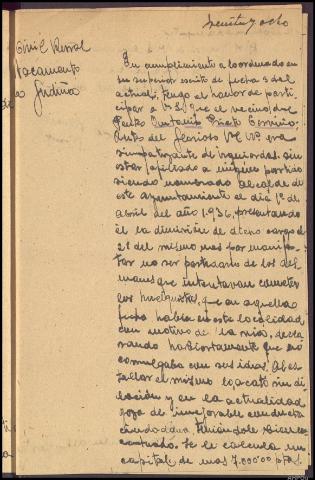 sesenta y ocho
Civil Rural
Destacamento
de Gudiña
En cumplimiento a lo ordenado en
su superior escrito de fecha 5 del
actual, tengo el honor de parti-
cipar a V.S. que el vecino de
Pentes Eustaquio
antes del Glorioso M. N. era
simpatizante de izquierdas, sin
estar afiliado a ningun partido
siendo nombrado alcalde de
este ayuntamiento el dia 1º de
abril del año 1.936, presentando
el la dimisión de dicho cargo el
28 del mismo mes por manifes-
tar no ser partidario de los des-
manes que intentavan cometer
los huelguistas, que en aquella
fecha habia en esta localidad
con motivo de la via, decla-
rando posteriormente que no
comulgaba con sus ideas. Al es-
tallar el mismo lo acató sin di-
lación y en la actualidad
goza de inmejorable conducta
ciudadana,
Se le calcula un
capital, de unas 7.000'00 ptas.